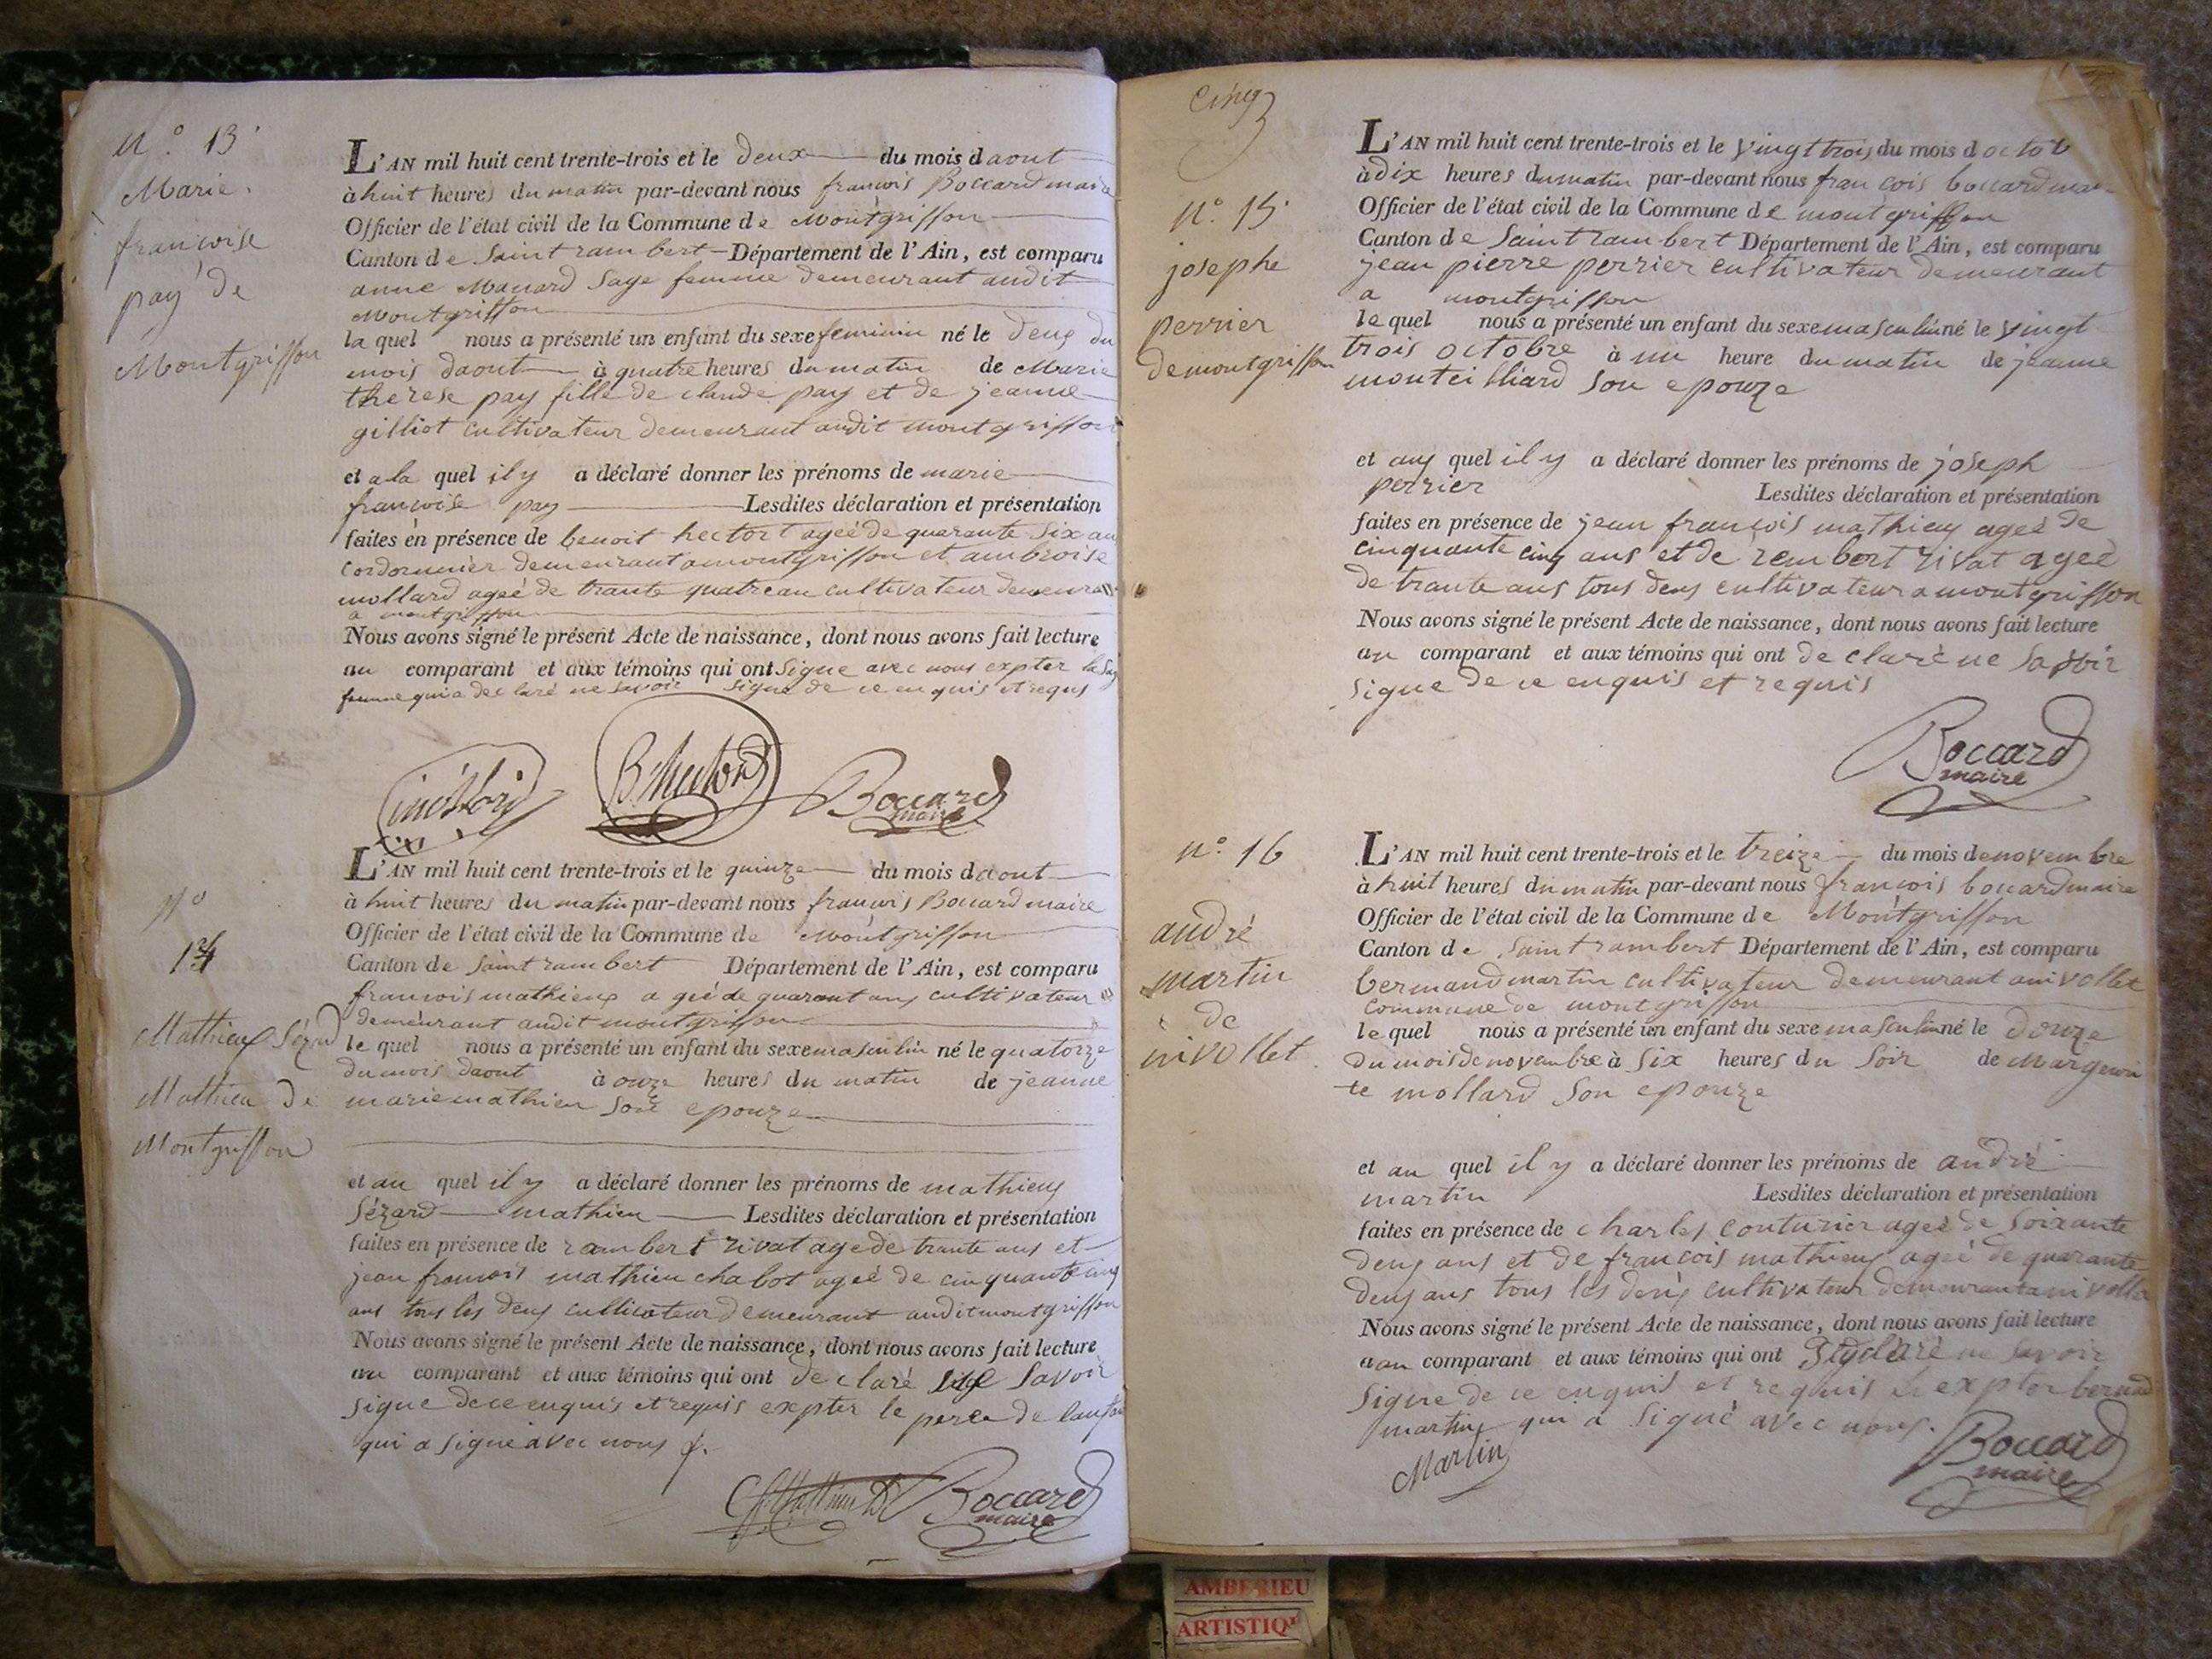 N.° 13
Marie
francoise
pay de
Montgriffon
L'AN mil huit cent trente-trois et le deux du mois d aout
à huit heures du matin par-devant nous francois Boccard maire
Officier de l'état civil de la Commune de Montgriffon
Canton de Saint rambert Département de l'Ain, est comparu
anne Manard Sage femme demeurant audit
Montgriffon
la quel nous a présenté un enfant du sexe feminin né le deux du
mois daout à quatre heures du matin de Marie
therese pay fille de claude pay et de jeanne
gilliot cultivateur demeurant audit montgriffon
et a la quel il y a déclaré donner les prénoms de marie
francoise pay Lesdites déclaration et présentation
faites en présence de benoit hectort ageé de quarante six an
Cordonnier demeurant a montgriffon et ambroise
mollard ageé de trante quatre an cultivateur demeurant
a montgriffon
Nous avons signé le présent Acte de naissance, dont nous avons fait lecture
au comparant et aux témoins qui ont Signe avec nous expter la Sag
femme qui a declaré ne savoir signe de ce enquis et requs
Boccard
maire
N°
14
Mathieux Sézard
Mathieu de
Montgriffon
L'AN mil huit cent trente-trois et le quinze du mois d aout
à huit heures du matin par-devant nous francois Boccard maire
Officier de l'état civil de la Commune de Montgriffon
Canton de Saint rambert Département de l'Ain, est comparu
francois mathieux a geé de quarant ans cultivateur
demeurant audit montgriffon
le quel nous a présenté un enfant du sexe masculin né le quatorze
du mois daout à onze heures du matin de jeanne
marie mathieu son epouze
et au quel il y a déclaré donner les prénoms de mathieux
Sézard mathieu Lesdites déclaration et présentation
faites en présence de rambert rivat age de trante ans et
jean francois mathieu chabot ageé de cinquante cinq
ans tous les deux cultivateur demeurant audit montgriffon
Nous avons signé le présent Acte de naissance, dont nous avons fait lecture
au comparant et aux témoins qui ont declaré Savoir
signe de ce enquis et requis expter le perre de lanfan
qui a signe avec nous
Boccard
maire
Cinq
N.° 15
josephe
perrier
de montgriffon
L'AN mil huit cent trente-trois et le vingt trois du mois d octob
à dix heures du matin par-devant nous francois boccard mai
Officier de l'état civil de la Commune de montgriffon
Canton de Saint rambert Département de l'Ain, est comparu
jean pierre perrier cultivateur demeurant
a montgriffon
le quel nous a présenté un enfant du sexe masculin né le vingt
trois octobre à un heure du matin de jeanne
monteilliard son epouze
et aux quel il y a déclaré donner les prénoms de joseph
perrier Lesdites déclaration et présentation
faites en présence de jean françois mathieux ageé de
cinquante cinq ans et de rembert rivat ageé
de trante ans tous deux cultivateur a montgriffon
Nous avons signé le présent Acte de naissance, dont nous avons fait lecture
au comparant et aux témoins qui ont de claré ne savoir
signe de ce enquis et requis
Boccard
maire
N.° 16
andré
martin
de
nivollet
L'AN mil huit cent trente-trois et le treize du mois de novembre
à huit heures du matin par-devant nous francois boccard maire
Officier de l'état civil de la Commune de Montgriffon
Canton de Saint rambert Département de l'Ain, est comparu
bernand martin cultivateur demeurant a nivollet
Commune de montgriffon
le quel nous a présenté un enfant du sexe masculin né le douze
du mois de novembre à six heures du soir de Margueri
te mollard son epouze
et au quel il y a déclaré donner les prénoms de andré
martin Lesdites déclaration et présentation
faites en présence de charles couturier ageé de soixante
deux ans et de francois mathieux ageé de quarante
deux ans tous les deux cultivateur demeurant a nivolla
Nous avons signé le présent Acte de naissance, dont nous avons fait lecture
au comparant et aux témoins qui ont ne savoir
signe de ce enquis et requis expter bernand
martin qui a signé avec nous.
Martin
Boccard
maire
AMBERIEU
ARTISTIQU